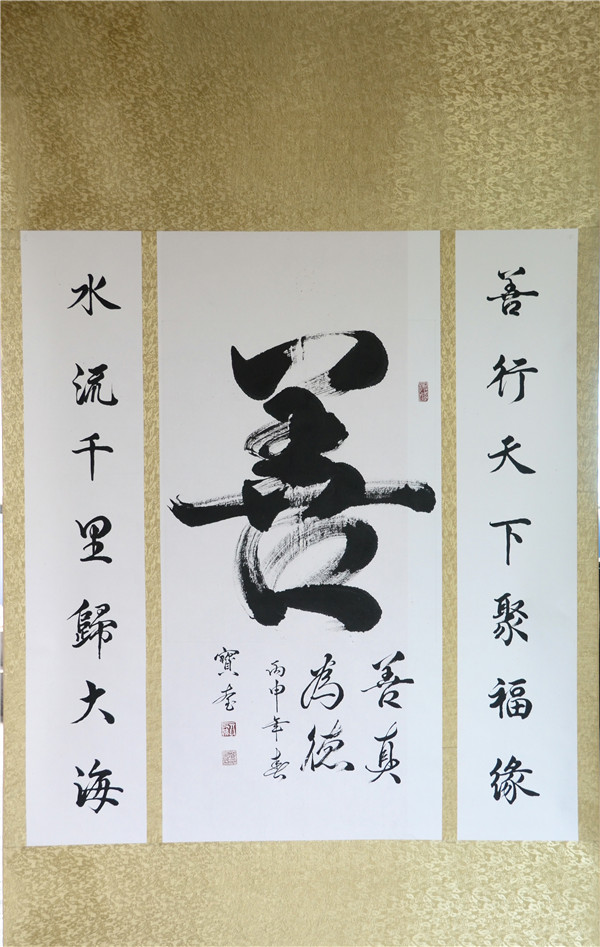 善行天下聚福缘
善
善真
為德
丙申年春
寶奎
水流千里歸大海